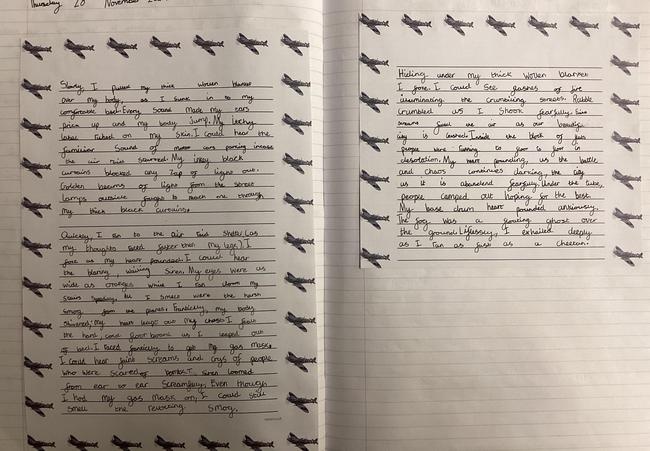 Thursday 20 November
Slowly, I pulled my thick woven blanket
over my body, as I sunk in to my
comfortable bed. Every sound made my ears
prick up and my body jump. My
on my skin. I could hear the
sound of motor cars
the air raid My inky black
curtains blocked any of light out.
Golden beams of light from the street
lamps outside fought to reach me through
my thick black curtains.
Quickly, I ran to the air raid Shelter (as
my thoughts raced faster than my legs) I
as my heart pounded. I could hear
the blaring, wailing siren. My eyes were as
wide as oranges while I ran down my
stairs All I smelt were the harsh
smog from the planes. Frantically, my body
shivered. My heart leapt out my chest. I
the hard, cold floor boards as I leaped out
of bed. I raced to get my gas mask.
I could hear faint screams and crys of people
who were scared of siren loomed
from ear to ear Even though
I had my gas mask on, I could still
smell the revolting smog.
Hiding under my thick woven blanket
I I could see of fire
illuminating the streets. Rubble
crumbled as I shook fearfully.
the air as our
city is Inside the block of flats
people were from floor to floor in
desolation. My heart pounding, as the battle
and chaos continues the city
as it is fearfully. Under the tube,
people camped out hoping for the best.
My base drum heart pounded anxiously.
The fog was a ghost over
the ground. I exhaled deeply
as I ran as fast as a cheetah.